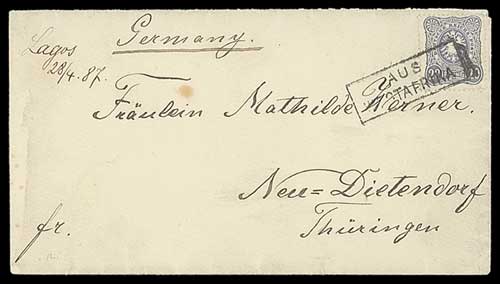 Germany.
Lagos
28/4.87.
AUS
WESTAFRIKA
Fräulein Mathilde Werner.
Neu=Dietendorf
Thüringen
fr.